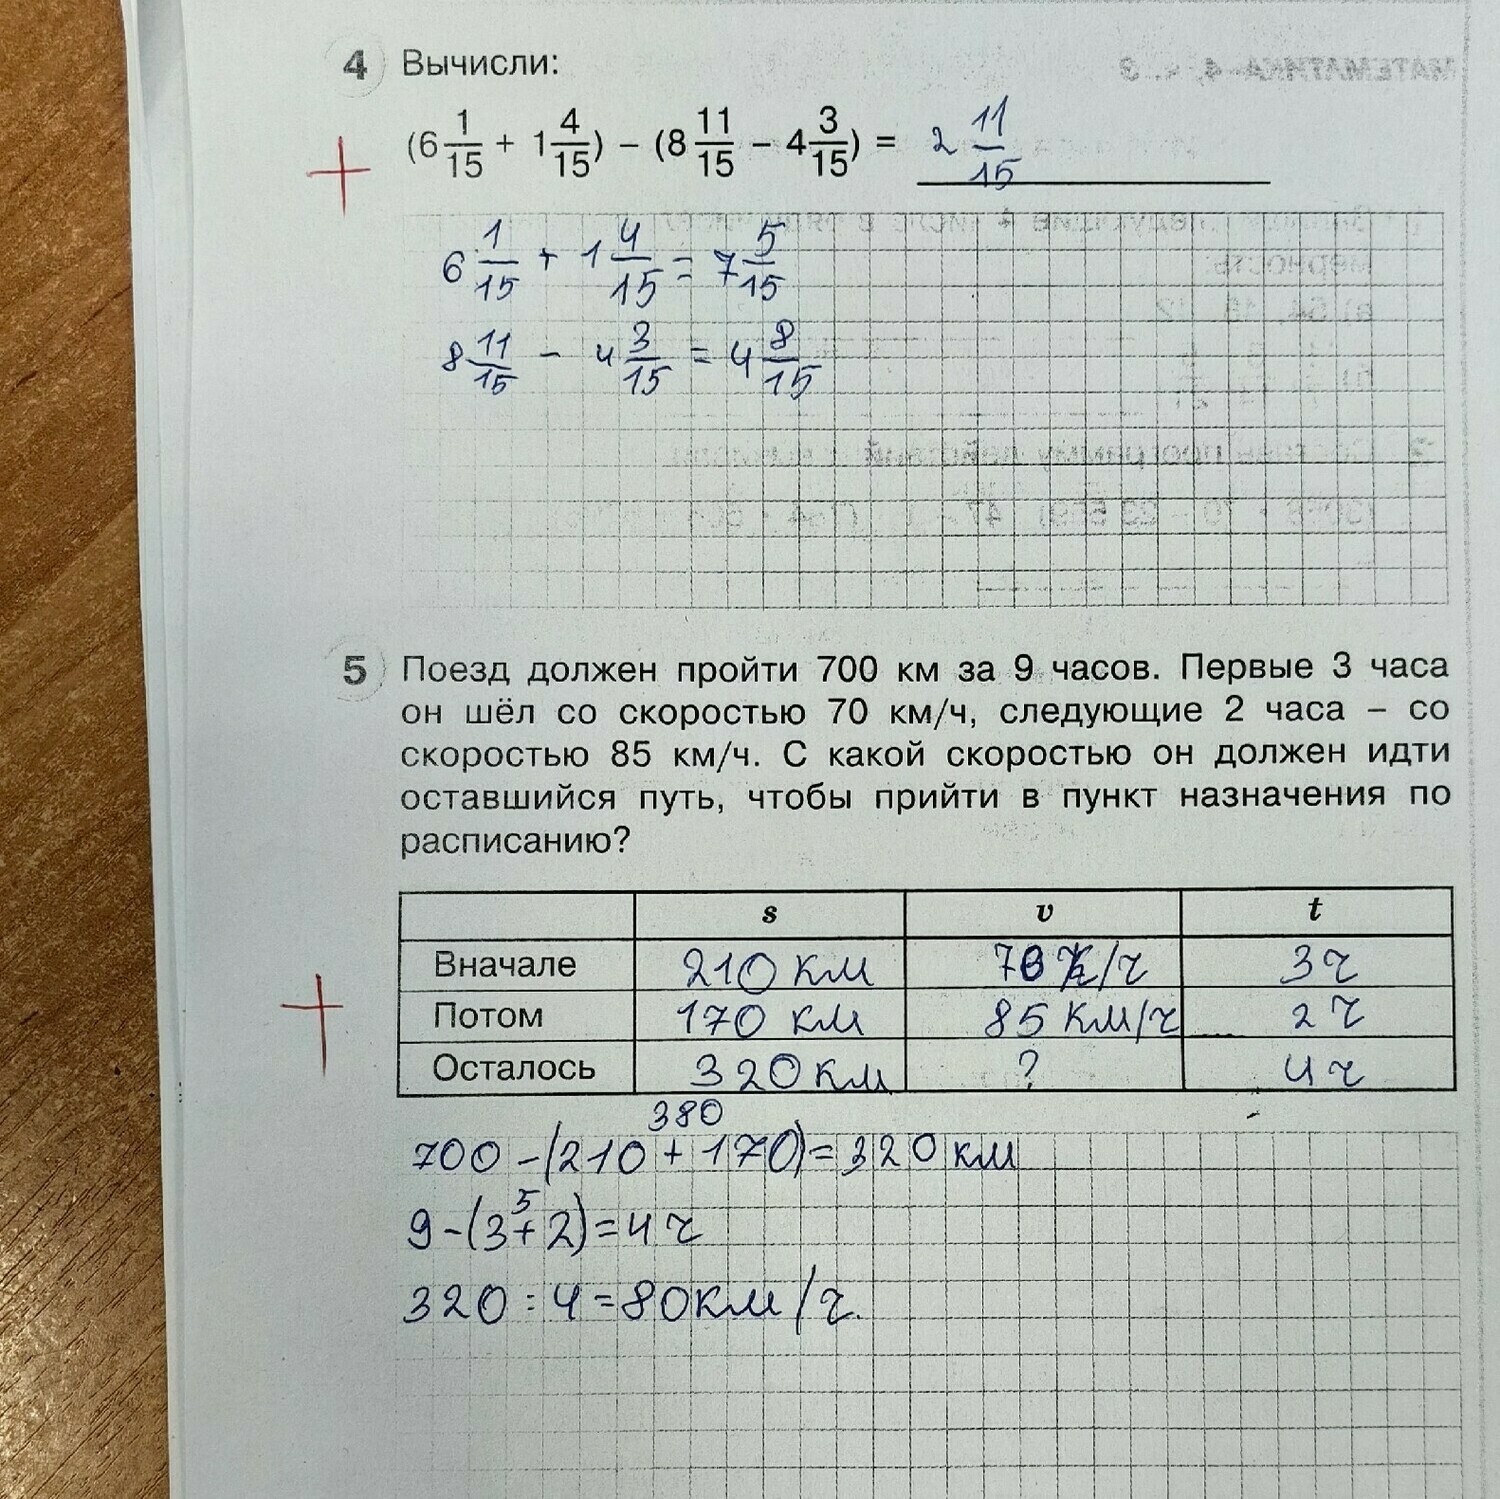 МАТЕМАТИКА-4, ч. 3
4 Вычисли:
(6 1/15 + 1 4/15) – (8 11/15 – 4 3/15) = 2 11/15
6 1/15 + 1 4/15 = 7 5/15
8 11/15 - 4 3/15 = 4 8/15
5 Поезд должен пройти 700 км за 9 часов. Первые 3 часа
он шёл со скоростью 70 км/ч, следующие 2 часа – со
скоростью 85 км/ч. С какой скоростью он должен идти
оставшийся путь, чтобы прийти в пункт назначения по
расписанию?
s v t
Вначале 210 км 70 к/ч 3 ч
Потом 170 км 85 км/ч 2 ч
Осталось 320 км ? 4 ч
380
700 - (210 + 170) = 320 км
5
9 - (3 + 2) = 4 ч
320 : 4 = 80 км/ч.